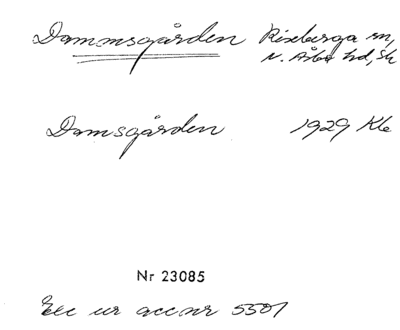 Dammsgården Riseberga sn,
N. Åsbo hd, Sk
Damsgården 1929 Kle
Nr 23085
Exc ur acc nr 5501